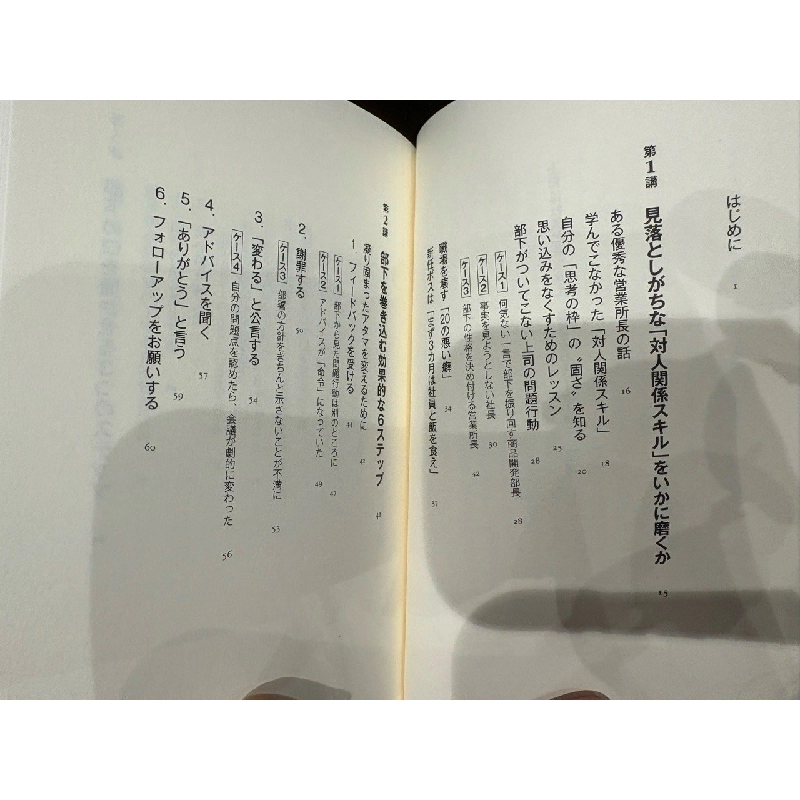 はじめに 1
第1講 見落としがちな「対人関係スキル」をいかに磨くか 15
ある優秀な営業所長の話 16
学んでこなかった「対人関係スキル」 18
自分の「思考の枠」の〝固さ〟を知る 20
思い込みをなくすためのレッスン 25
部下がついてこない上司の問題行動 28
ケース1 何気ない一言で部下を振り回す商品開発部長 28
ケース2 事実を見ようとしない社長 30
ケース3 部下の性格を決め付ける営業所長 32
職場を壊す「20の悪い癖」 34
新任ボスは「まず3カ月は社員と飯を食え」 37
第2講 部下を巻き込む効果的な6ステップ
凝り固まったアタマを変えるために 42
1. フィードバックを受ける 44
ケース1 部下から見た問題行動は別のところに 47
ケース2 アドバイスが「命令」になっていた 49
2. 謝罪する 50
ケース3 部署の方針をきちんと示さないことが不満に 53
3. 「変わる」と公言する 54
ケース4 自分の問題点を認めたら、会議が劇的に変わった 56
4. アドバイスを聞く 57
5. 「ありがとう」と言う 59
6. フォローアップをお願いする 60